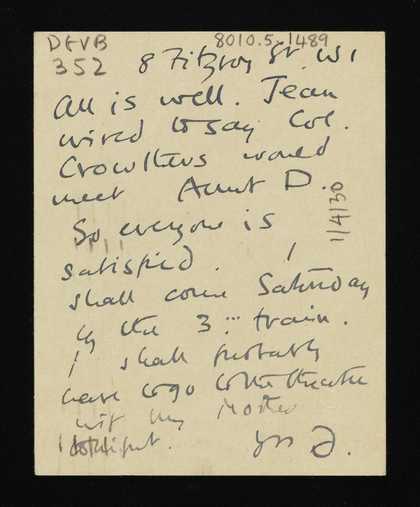 DGVB 8010.5.1489
352 8 Fitzroy St. W1
All is well. Jean
wired to say Col.
Crowthers would
meet Aunt D.
1/4/30
So everyone is
satisfied. I
shall come Saturday
by the 3 train.
I shall probably
have to go to the theatre
wit my Mother
tonight. Yrs D.